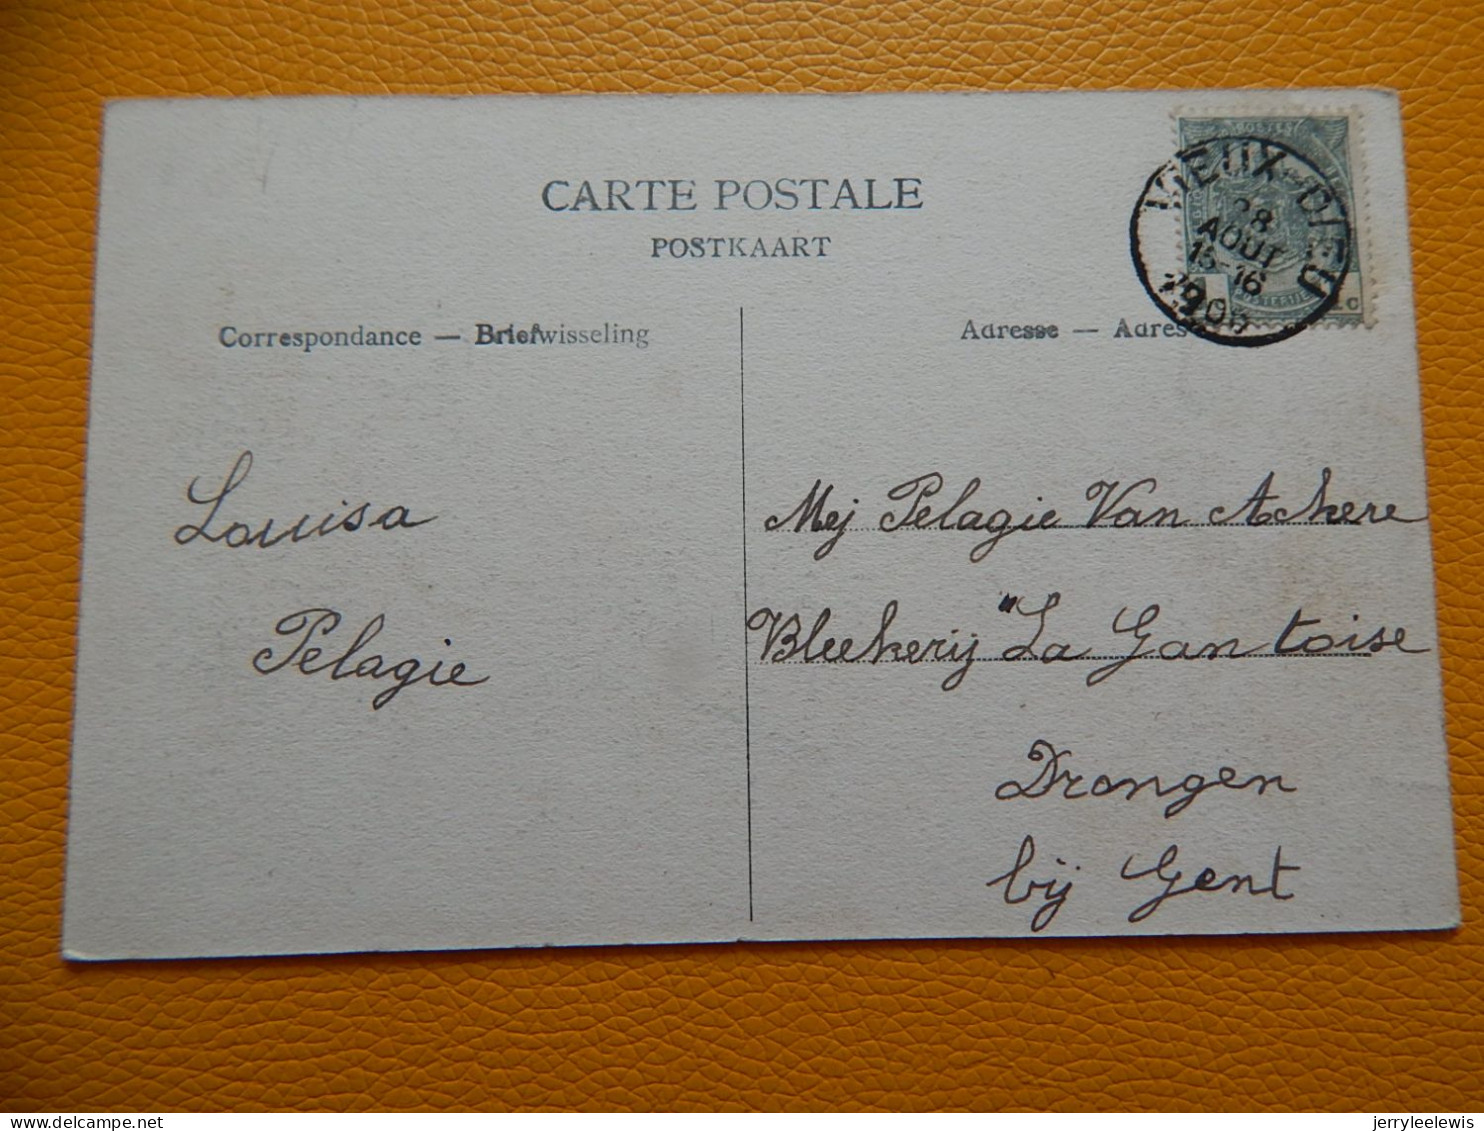 CARTE POSTALE
POSTKAART
Correspondance — Briefwisseling
Adresse — Adres
VIEUX-DIEU
28
AOUT
15-16
190
Louisa
Pelagie
Mej Pelagie Van Ackere
Bleekerij "La Gantoise
Drongen
bij Gent
jerryleelewis